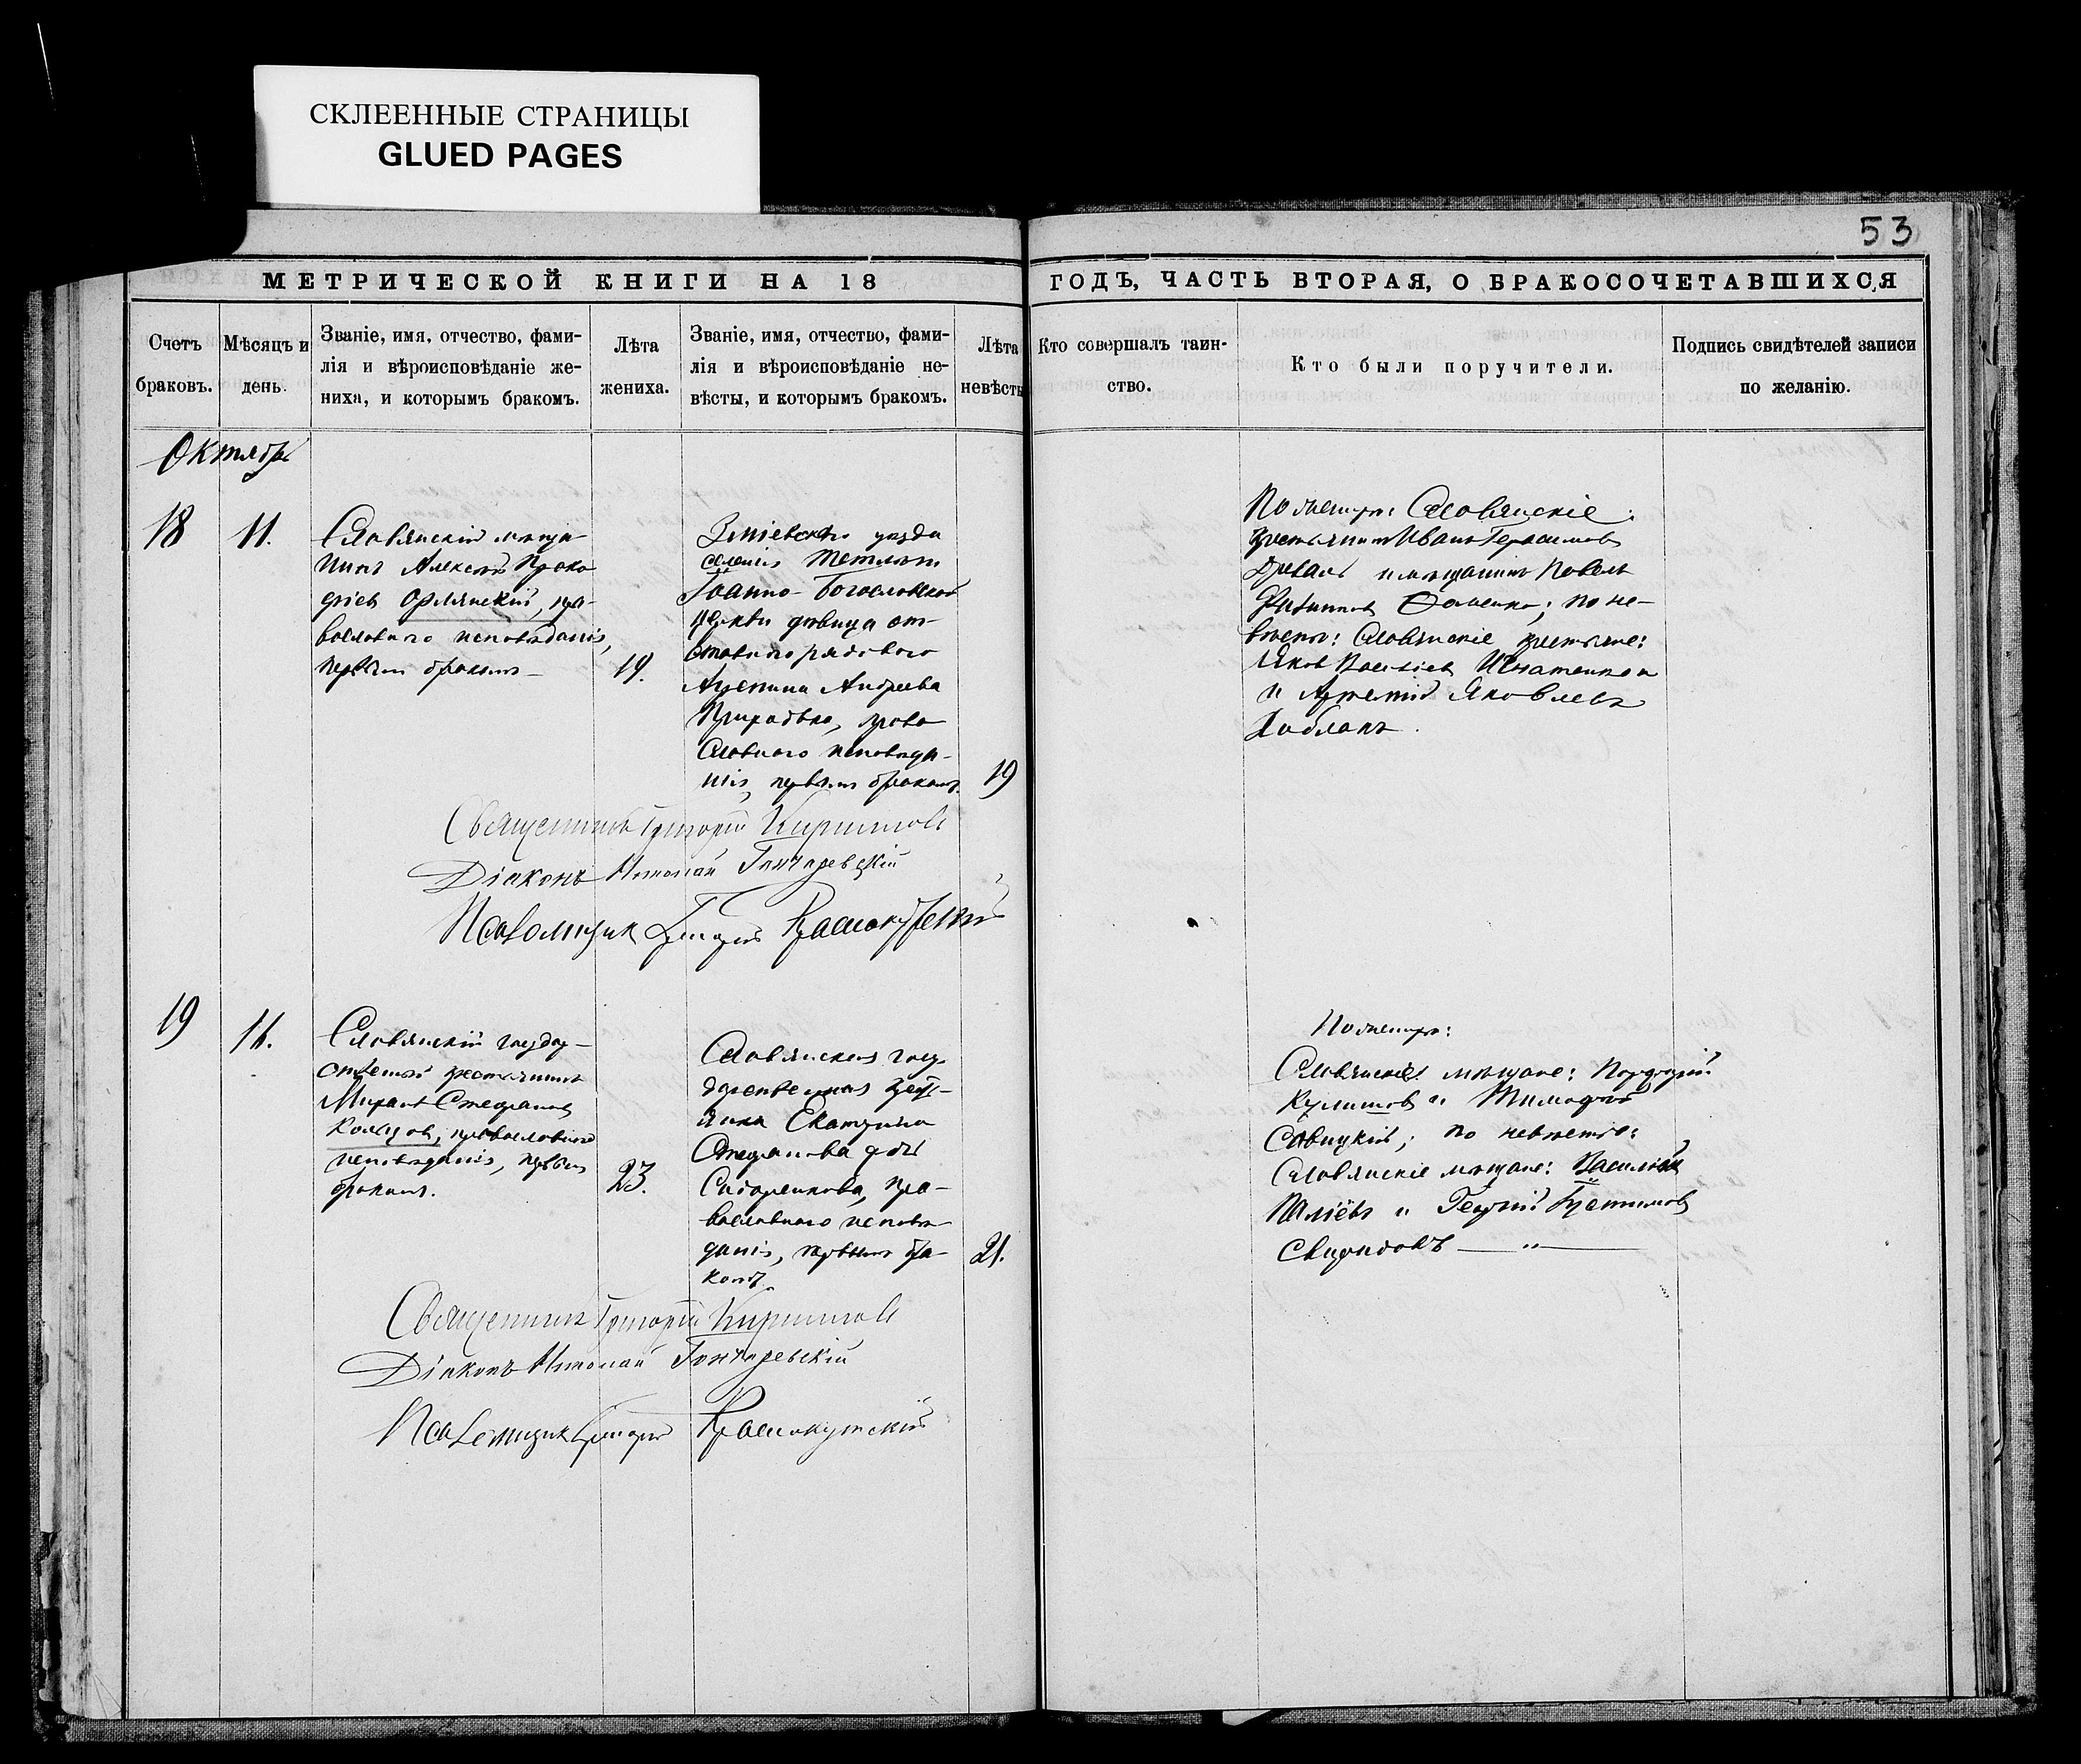 СКЛЕЕННЫЕ СТРАНИЦЫ
GLUED PAGES
53
МЕТРИЧЕСКОЙ КНИГИ НА 18
ГОДЪ, ЧАСТЬ ВТОРАЯ, О БРАКОСОЧЕТАВШИХСЯ
Счетъ
браковъ.
Мѣсяцъ и
день.
Званіе, имя, отчество, фами-
лія и вѣроисповѣданіе же-
ниха, и которымъ бракомъ.
Лѣта
жениха.
Званіе, имя, отчество, фами-
лія и вѣроисповѣданіе не-
вѣсты, и которымъ бракомъ.
Лѣта
невѣсты
Кто совершалъ таин-
ство.
Кто были поручители.
Подпись свидѣтелей записи
по желанію.
Октябрь
18
11.
Славянскій мѣща-
нинъ Алексѣй Проко
фіевъ Орлянскій, пра-
вославнаго исповѣданія,
первымъ бракомъ
19.
Зміевскаго уѣзда
селенія
Іоанно-Богословской
церкви дѣвица от-
ставнаго рядового
Андреева
право
славнаго исповѣда-
нія, первымъ бракомъ.
19
По женихѣ: Славянскіе:
крестьянинъ Иванъ Герасимовъ
и мѣщанинъ Павелъ
по не-
вѣстѣ: Славянскіе крестьяне:
Яковъ Игнатенко
и Артемій Яковлевъ
Священникъ Григорій
Діаконъ Николай Гончаревскій
Псаломщикъ Григорій Краснокутскій
19
Славянскій государ-
ственный крестьянинъ
Стефановъ
Кольцовъ, православнаго
исповѣданія, первымъ
бракомъ.
23.
Славянская госу
дарственная крест-
янка Екатерина
Стефанова дочь
Сидоренкова, пра-
вославнаго исповѣ-
данія, первымъ бра-
комъ.
21.
По женихѣ:
Славянскіе мѣщане:
и Тимофей
Савицкій; по невѣстѣ:
Славянскіе мѣщане: Василій
и Георгій
Свиридовъ
Священникъ Григорій
Діаконъ Николай Гончаревскій
Псаломщикъ Григорій Краснокутскій